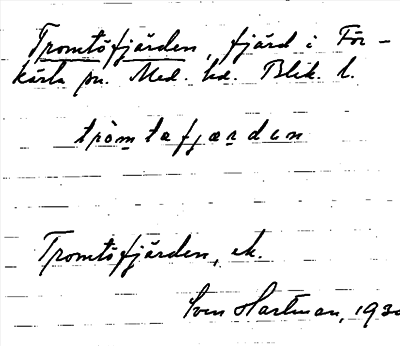 Tromtöfjärden, fjärd i För-
kärla sn. Med. hd. Blek. l.
tròmtafjærden
Tromtöfjärden, ek.
Sven Hartman, 1930